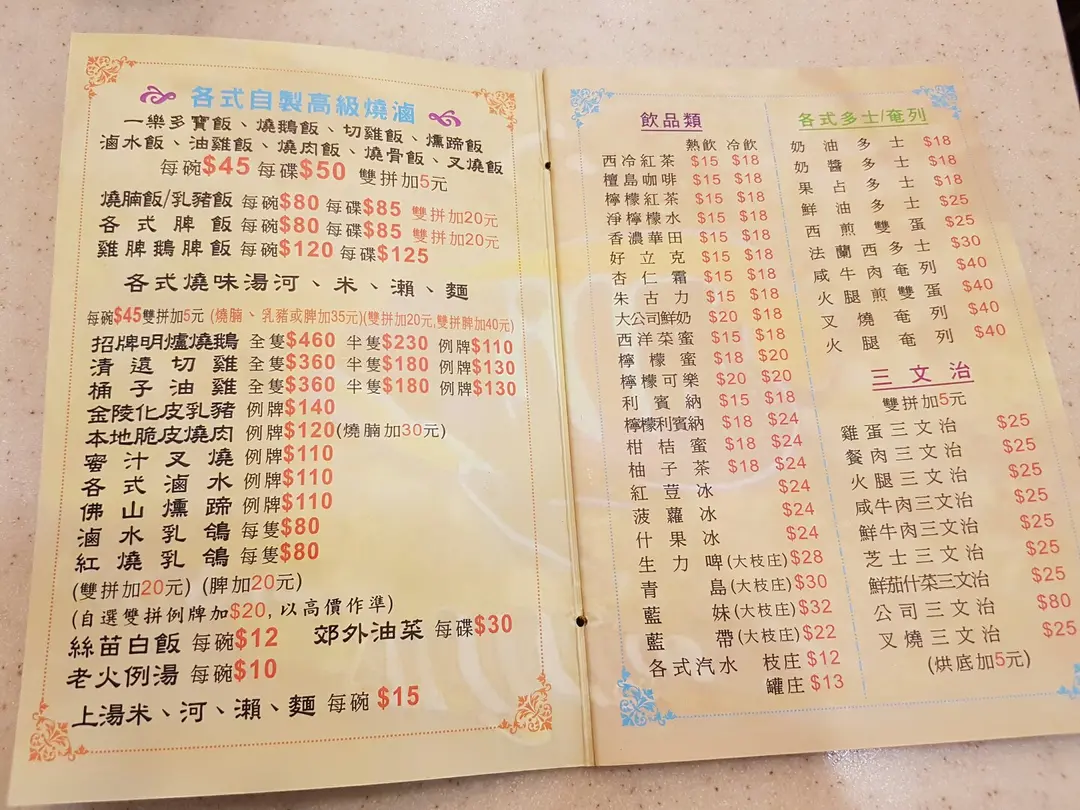 各式自製高級燒滷
一樂多寶飯、燒鵝飯、切雞飯、燻蹄飯
滷水飯、油雞飯、燒肉飯、燒骨飯、叉燒飯
每碗$45 每碟$50 雙拼加5元
燒腩飯/乳豬飯 每碗$80 每碟$85 雙拼加20元
各式脾飯 每碗$80 每碟$85 雙拼加20元
雞脾鵝脾飯 每碗$120 每碟$125
各式燒味湯河、米、瀨、麵
每碗$45雙拼加5元 (燒腩、乳豬或脾加35元)(雙拼加20元,雙拼脾加40元)
招牌明爐燒鵝 全隻$460 半隻$230 例牌$110
清遠切雞 全隻$360 半隻$180 例牌$130
桶子油雞 全隻$360 半隻$180 例牌$130
金陵化皮乳豬 例牌$140
本地脆皮燒肉 例牌$120(燒腩加30元)
蜜汁叉燒 例牌$110
各式滷水 例牌$110
佛山燻蹄 例牌$110
滷水乳鴿 每隻$80
紅燒乳鴿 每隻$80
(雙拼加20元) (脾加20元)
(自選雙拼例牌加$20,以高價作準)
絲苗白飯 每碗$12 郊外油菜 每碟$30
老火例湯 每碗$10
上湯米、河、瀨、麵 每碗 $15
飲品類
熱飲 冷飲
西冷紅茶 $15 $18
檀島咖啡 $15 $18
檸檬紅茶 $15 $18
淨檸檬水 $15 $18
香濃華田 $15 $18
好立克 $15 $18
杏仁霜 $15 $18
朱古力 $15 $18
大公司鮮奶 $20 $18
西洋菜蜜 $15 $18
檸檬蜜 $18 $20
檸檬可樂 $20 $20
利賓納 $15 $18
檸檬利賓納 $18 $24
柑桔蜜 $18 $24
柚子茶 $18 $24
紅荳冰 $24
菠蘿冰 $24
什果冰 $24
生力啤(大枝庄) $28
青島(大枝庄) $30
藍妹(大枝庄) $32
藍帶(大枝庄) $22
各式汽水 枝庄 $12
罐庄 $13
各式多士/奄列
奶油多士 $18
奶醬多士 $18
果占多士 $18
鮮油多士 $25
西煎雙蛋 $25
法蘭西多士 $30
咸牛肉奄列 $40
火腿煎雙蛋 $40
叉燒奄列 $40
火腿奄列 $40
三文治
雙拼加5元
雞蛋三文治 $25
餐肉三文治 $25
火腿三文治 $25
咸牛肉三文治 $25
鮮牛肉三文治 $25
芝士三文治 $25
鮮茄什菜三文治 $25
公司三文治 $80
叉燒三文治 $25
(烘底加5元)